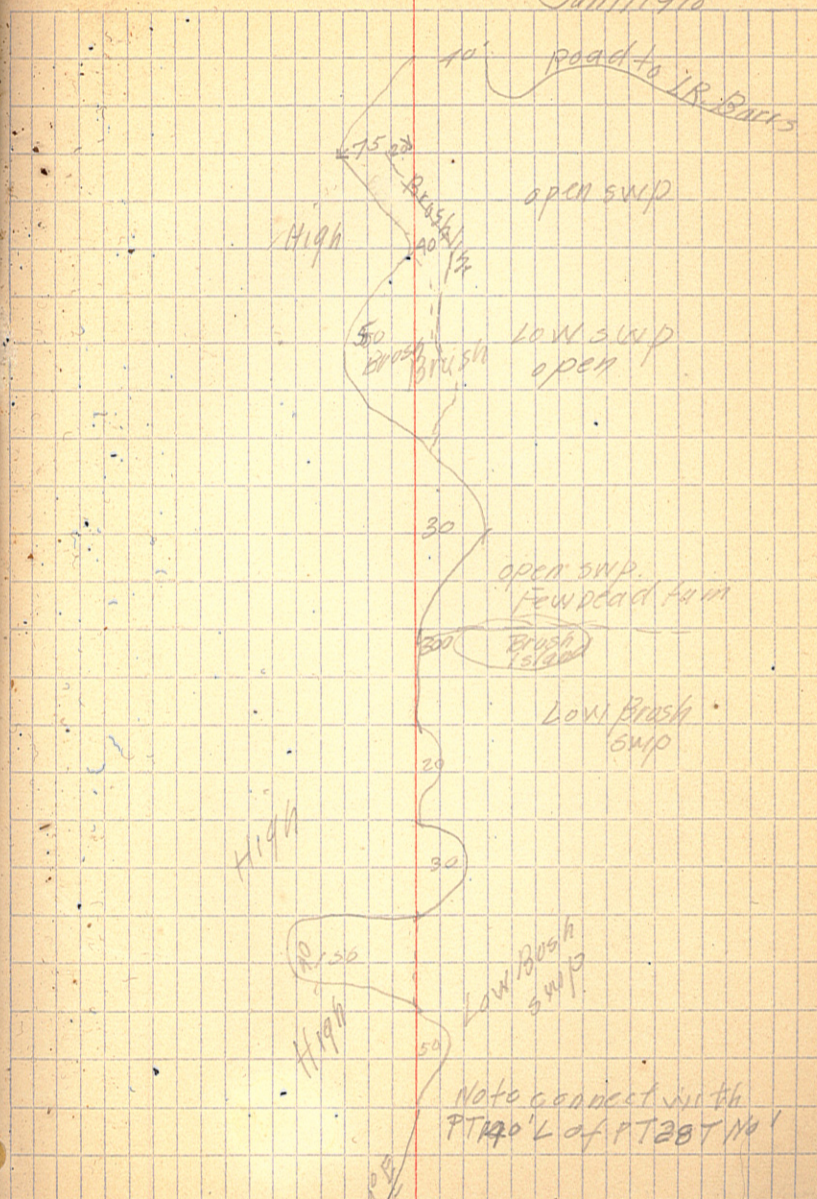 40'
Road to
I.R. Barrs
75
Brush
open swp
High
40
50
Brush
Brush
Low swp
open
30
open swp.
Few Dead tam
300
Brush
Island
Low Brush
swp
20
High
30
150
Low Bush
swp
High
50
No to connect with
PT 140'L of PT 28 T No 1